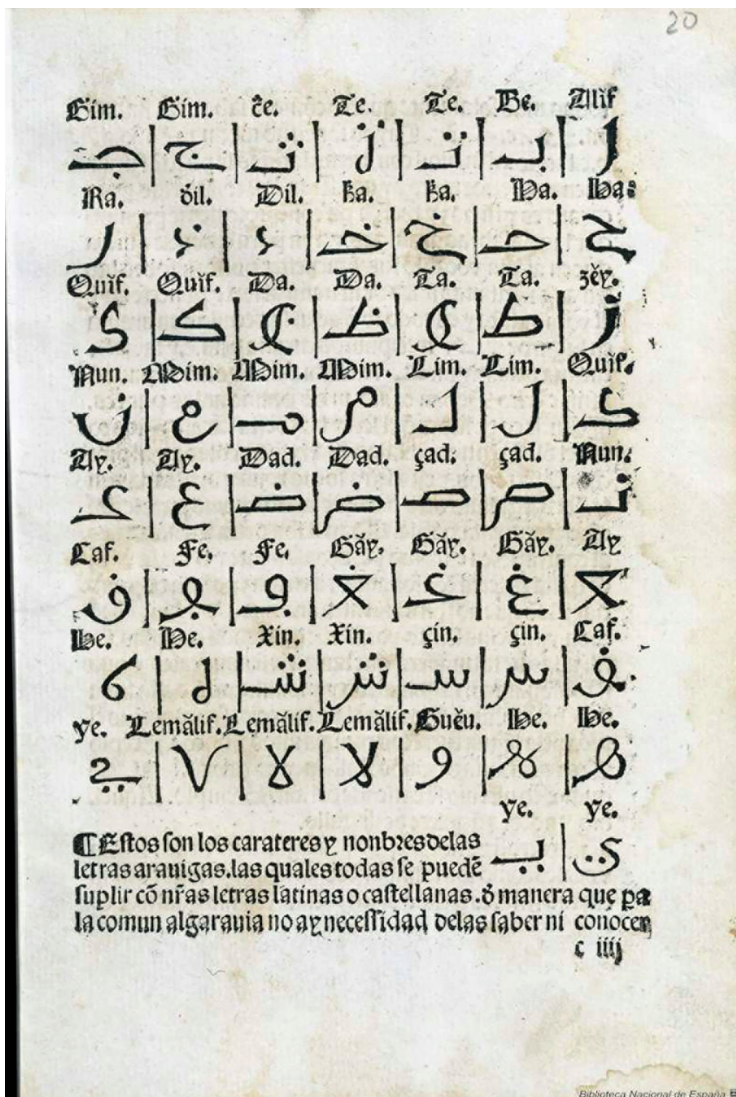 20
Gim. Gim. c̃e. Te. Te. Be. Alif
جـ ج تـ ت بـ ا
Ra. dil. Dil. ka. ka. Ha. Ha:
ر ذ د خـ خ حـ ح
Quif. Quif. Da. Da. Ta. Ta. zĕy.
ظـ طـ ز
Nun. Mim. Mim. Mim. Lim. Lim. Quif.
ن م مـ م لـ ل
Ay. Ay. Dad. Dad. çad. çad. Nun.
عـ ع ضـ ض صـ ص نـ
Caf. Fe. Fe. Găy. Găy. Găy. Ay
غـ غ
He. He. Xin. Xin. çin. çin. Caf.
ه شـ ش سـ س
ye. Lemălif. Lemălif. Lemălif. Guĕu. He. He.
لا لا و
ye. ye.
يـ ي
¶Estos son los carateres y nonbres delas
letras arauigas. las quales todas se puedē
suplir cō nr̃as letras latinas o castellanas. d̃ manera que p̱a
la comun algarauia no ay necessidad delas saber ni conocer
c iiij
Biblioteca Nacional de España